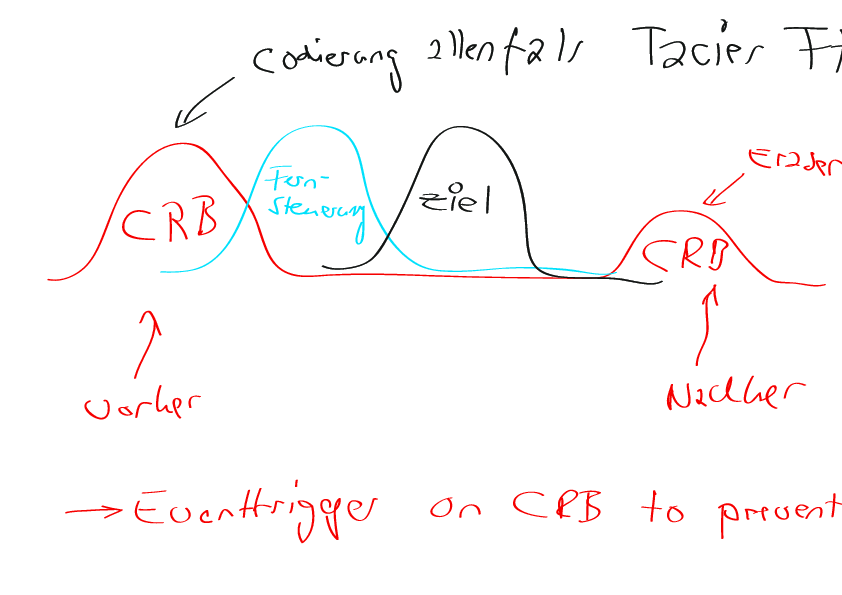 Codierung allenfals Tacier Fi
Erader
Fern-
steuerung
Ziel
CRB
CRB
vorher
Nachher
→ Eventtrigger on CRB to prevent